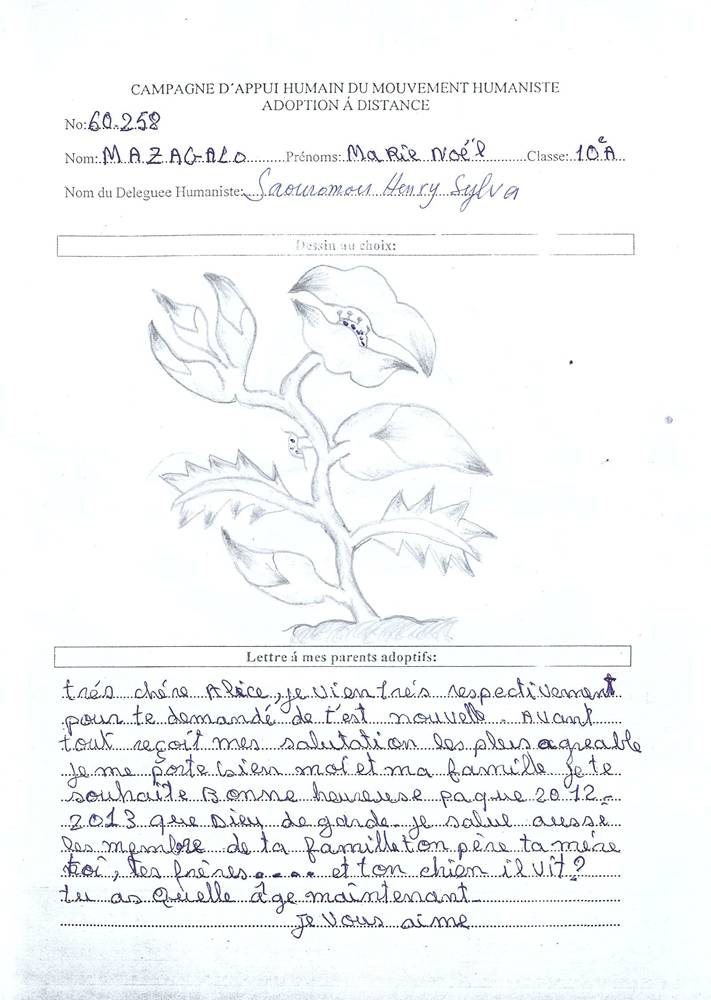 CAMPAGNE D´APPUI HUMAIN DU MOUVEMENT HUMANISTE
ADOPTION Á DISTANCE
No: 60.258
Nom: MAZAGALO Prénoms: Marie Noél Classe: 10e A
Nom du Deleguee Humaniste: Saouromou Henry Sylva
Dessin au choix:
Lettre á mes parents adoptifs:
trés chére Alice, je vien trés respectivement
pour te demandé de t'est nouvelle. Avant
tout reçoit mes salutation les plus agreable
je me porte bien moi et ma famille je te
souhaite Bonne heureuse paque 2012-
2013 que Dieu de garde. je salue aussi
les membre de ta famille ton pére ta mére
toi, tes fréres.... et ton chien il vit?
tu as Quelle âge maintenant
je vous aime